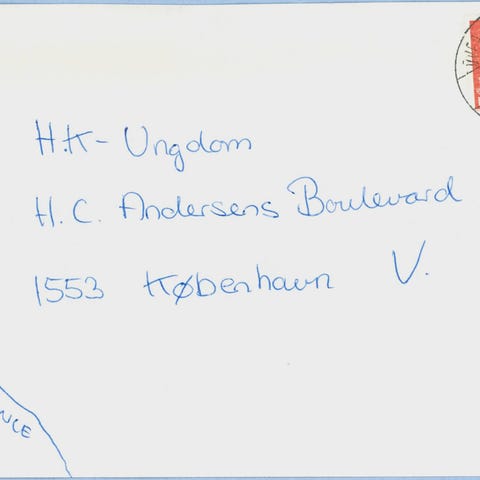 H.K- Ungdom
H.C. Andersens Boulevard
1553 København V.